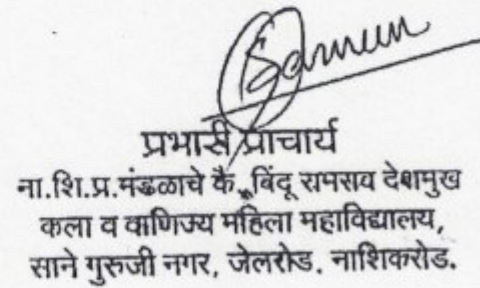 प्रभारी प्राचार्य
ना.शि.प्र.मंडळाचे कै. बिंदू रामराव देशमुख
कला व वाणिज्य महिला महाविद्यालय,
साने गुरुजी नगर, जेलरोड. नाशिकरोड.